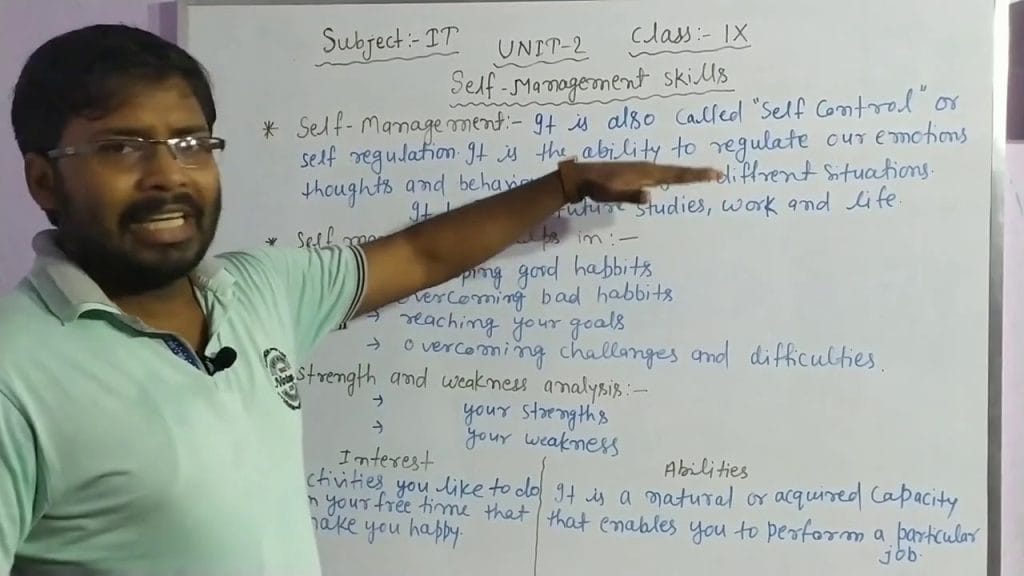 Subject:- IT
UNIT-2
Class:- IX
Self-Management skills
* Self-Management:- It is also called "Self Control" or
self regulation. It is the ability to regulate our emotions
thoughts and behavio diffrent Situations.
It future studies, work and life.
* Self ma lps in:-
ping good habbits
overcoming bad habbits
→ reaching your goals
→ overcoming challanges and difficulties.
strength and weakness analysis:-
→ your strengths
→ your weakness
Interest
ctivities you like to do
n your free time that
make you happy.
Abilities
It is a natural or acquired Capacity
that enables you to perform a particular
job.